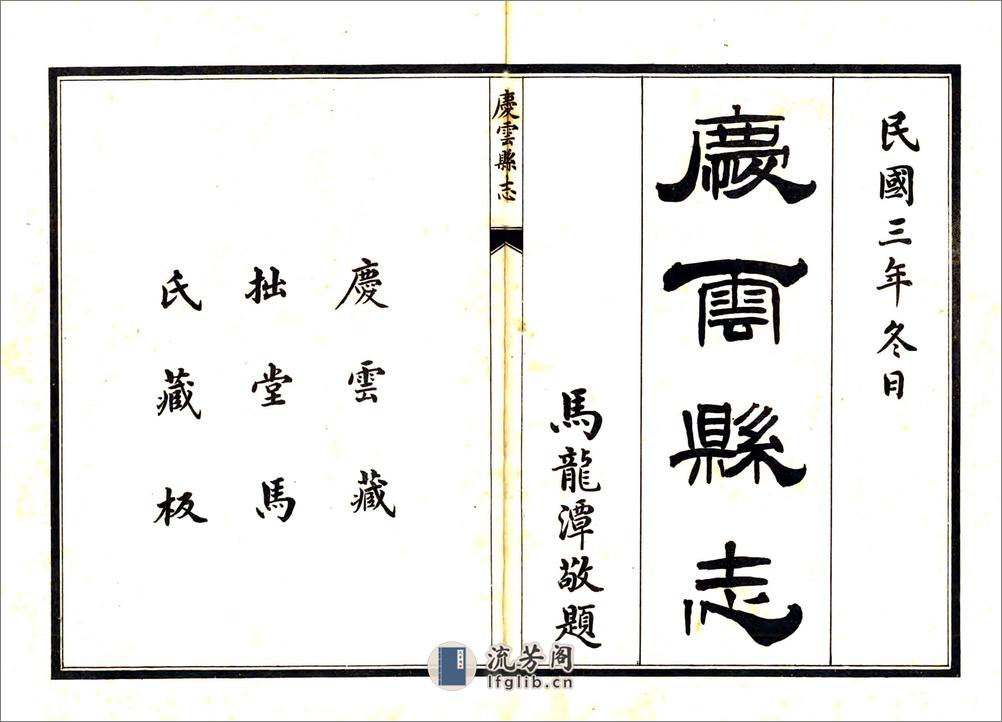 民國三年冬日
慶雲縣志
馬龍潭敬題
慶雲縣志
慶雲藏
拙堂馬
氏藏板
流芳阁
lfglib.cn